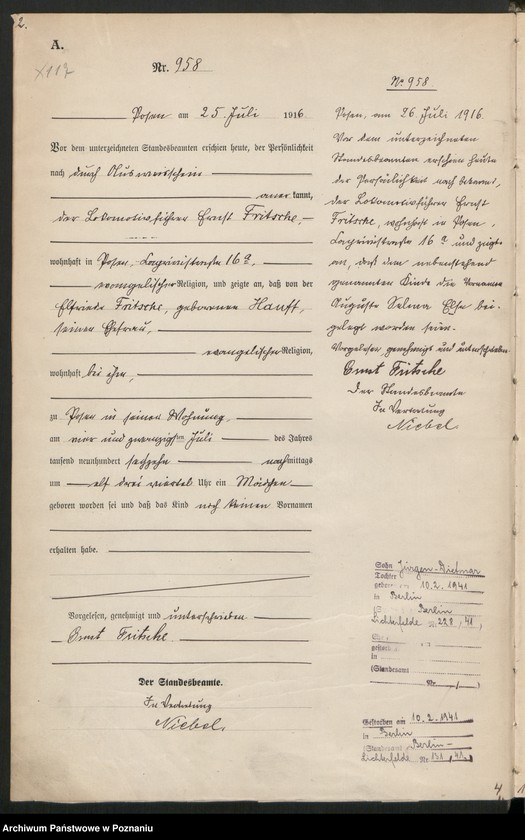 2.
A.
Nr. 958
Posen am 25. Juli 1916
Vor dem unterzeichneten Standesbeamten erschien heute, der Persönlichkeit
nach durch Ausweisschein
anerkannt,
der Lokomotivführer Ernst Fritsche,
wohnhaft in Posen, Caprivistraße 16a,
evangelischer Religion, und zeigte an, daß von der
Elfriede Fritsche, geborenen Hanff,
seiner Ehefrau,
evangelischer Religion,
wohnhaft bei ihm,
zu Posen in seiner Wohnung,
am vier und zwanzigsten Juli des Jahres
tausend neunhundert sechzehn nachmittags
um elf drei viertel Uhr ein Mädchen
geboren worden sei und daß das Kind noch keinen Vornamen
erhalten habe.
Vorgelesen, genehmigt und unterschrieben
Ernst Fritsche
Der Standesbeamte.
In Vertretung
Niebel.
No 958
Posen, am 26. Juli 1916.
Vor dem unterzeichneten
Standesbeamten erschien heute
der Persönlichkeit nach bekannt,
der Lokomotivführer Ernst
Fritsche, wohnhaft in Posen,
Caprivistraße 16a und zeigte
an, daß dem nebenstehend
genannten Kinde die Vornamen
Auguste Selma Else bei-
gelegt worden seien.
Vorgelesen genehmigt und unterschrieben
Ernst Fritsche
Der Standesbeamte
In Vertretung
Niebel
Sohn Jürgen-Dietmar
Tochter
gebor 10.2.1941
in Berlin
(S Berlin
Lichterfelde Nr 228/41)
in
(Standesamt
Nr. /)
Gestorben am 10.2.1941
in Berlin
(Standesamt Berlin-
Lichterfelde Nr 131/41)
Archiwum Państwowe w Poznaniu